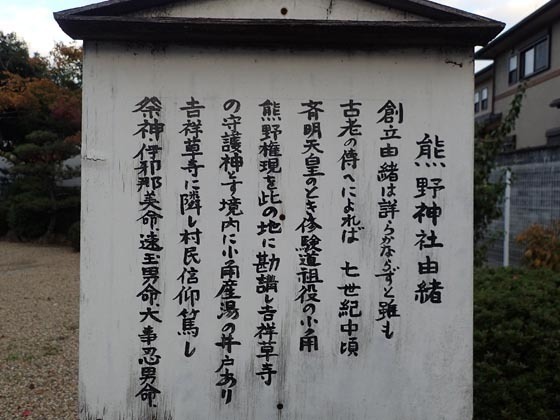 熊野神社由緒
創立由緒は詳らかならずと雖も
古老の傳へによれば 七世紀中頃
斉明天皇のとき修験道祖役の小角
熊野権現を此の地に勘請し吉祥草寺
の守護神とす境内に小角産湯の井戸あり
吉祥草寺に隣し村民信仰篤し
祭神 伊邪那美命.速玉男命.大事忍男命.